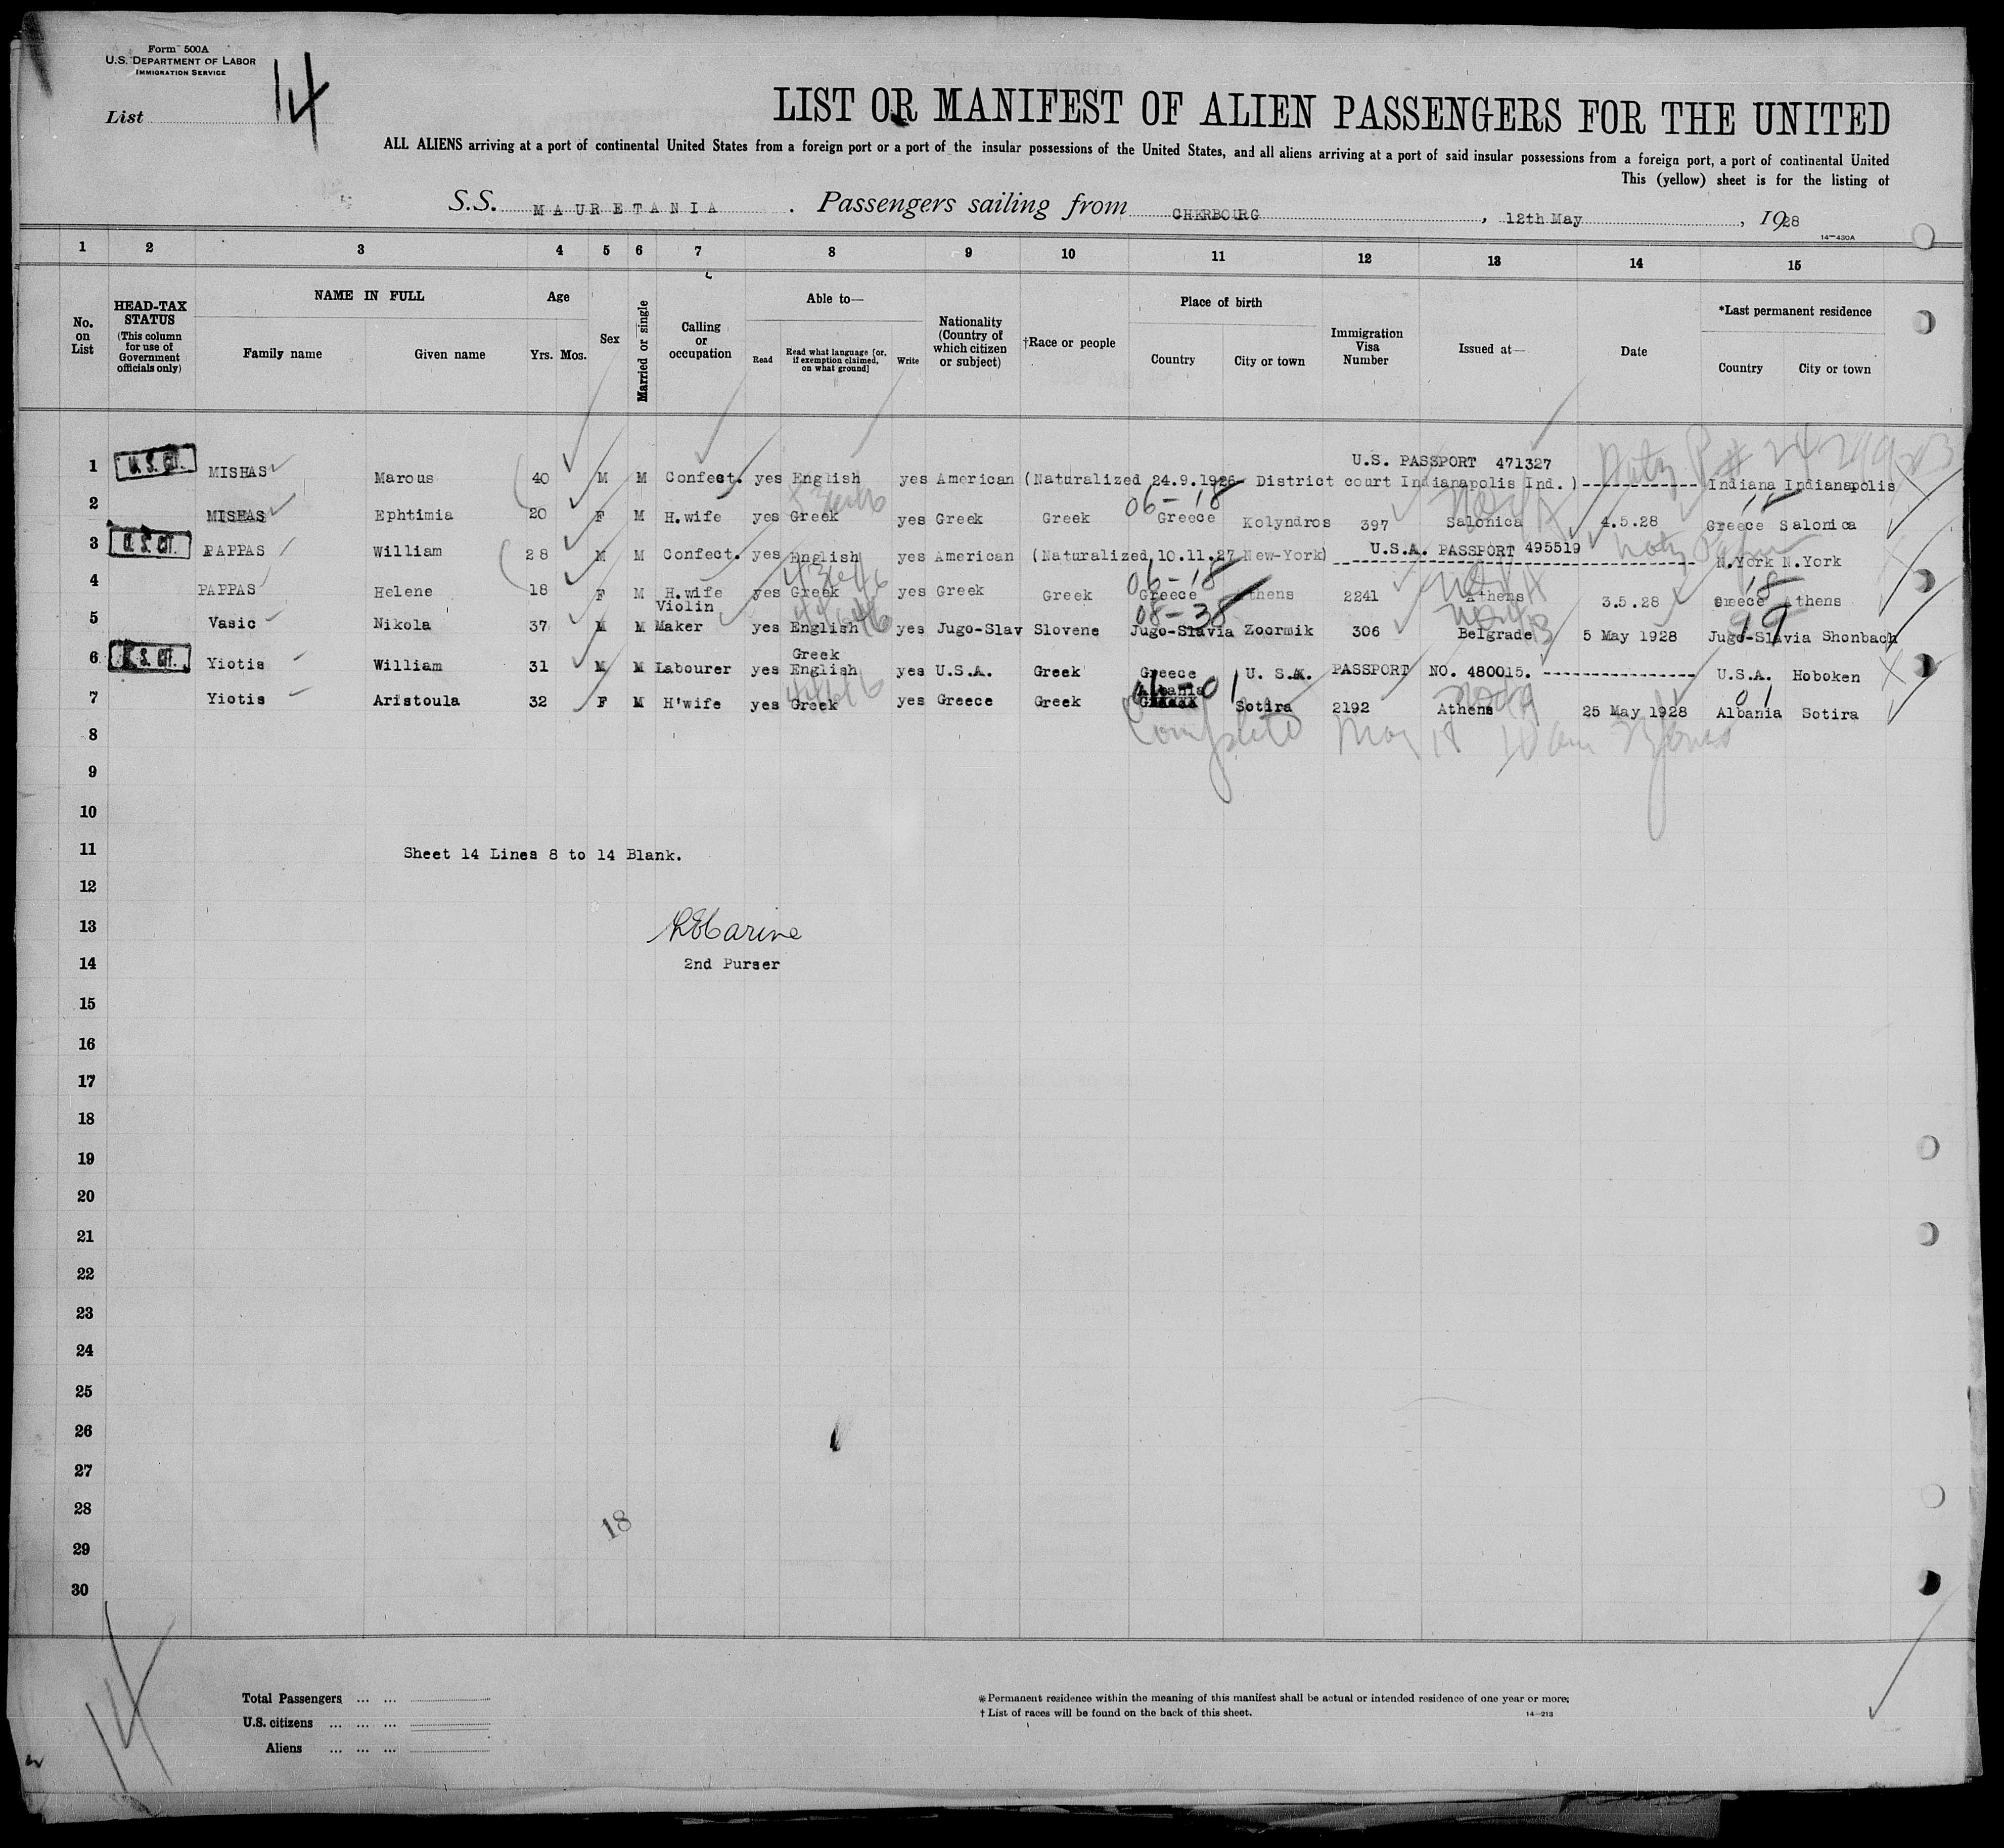 Form 500A
U.S. DEPARTMENT OF LABOR
IMMIGRATION SERVICE
List 14
LIST OR MANIFEST OF ALIEN PASSENGERS FOR THE UNITED
ALL ALIENS arriving at a port of continental United States from a foreign port or a port of the insular possessions of the United States, and all aliens arriving at a port of said insular possessions from a foreign port, a port of continental United
This (yellow) sheet is for the listing of
S.S. MAURETANIA. Passengers sailing from CHERBOURG, 12th May, 1928
14-430A
1 2 3 4 5 6 7 8 9 10 11 12 13 14 15
No. on List
HEAD-TAX STATUS (This column for use of Government officials only)
NAME IN FULL
Family name Given name
Age
Yrs. Mos.
Sex
Married or single
Calling or occupation
Able to—
Read Read what language [or, if exemption claimed, on what ground] Write
Nationality (Country of which citizen or subject)
†Race or people
Place of birth
Country City or town
Immigration Visa Number
Issued at—
Date
*Last permanent residence
Country City or town
U.S. PASSPORT 471327
1 U.S. CIT. MISHAS Marous 40 M M Confect. yes English yes American (Naturalized 24.9.1926 District court Indianapolis Ind.) Indiana Indianapolis
06-18 18
2 MISHAS Ephtimia 20 F M H.wife yes Greek yes Greek Greek Greece Kolyndros 397 Salonica 4.5.28 Greece Salonica
3 U.S. CIT. PAPPAS William 28 M M Confect. yes English yes American (Naturalized 10.11.27 New-York) U.S.A. PASSPORT 495519 N.York N.York
06-18 18
4 PAPPAS Helene 18 F M H.wife yes Greek yes Greek Greek Greece thens 2241 Athens 3.5.28 Greece Athens
08-38 99
5 Vasic Nikola 37 M M Violin Maker yes English yes Jugo-Slav Slovene Jugo-Slavia Zoormik 306 Belgrade 5 May 1928 Jugo-Slavia Shonbach
6 U.S. CIT. Yiotis William 31 M M Labourer yes Greek English yes U.S.A. Greek Greece U. S.A. PASSPORT NO. 480015. U.S.A. Hoboken
01
7 Yiotis Aristoula 32 F M H'wife yes Greek yes Greece Greek Albania Sotira 2192 Athens 25 May 1928 Albania Sotira
8 Complete May 18 10 am
9
10
11 Sheet 14 Lines 8 to 14 Blank.
12
13
14 2nd Purser
15
16
17
18
19
20
21
22
23
24
25
26
27
28
18
29
30
14
Total Passengers ... ...
U.S. citizens ... ... ...
Aliens ... ... ...
*Permanent residence within the meaning of this manifest shall be actual or intended residence of one year or more.
† List of races will be found on the back of this sheet.
14-213